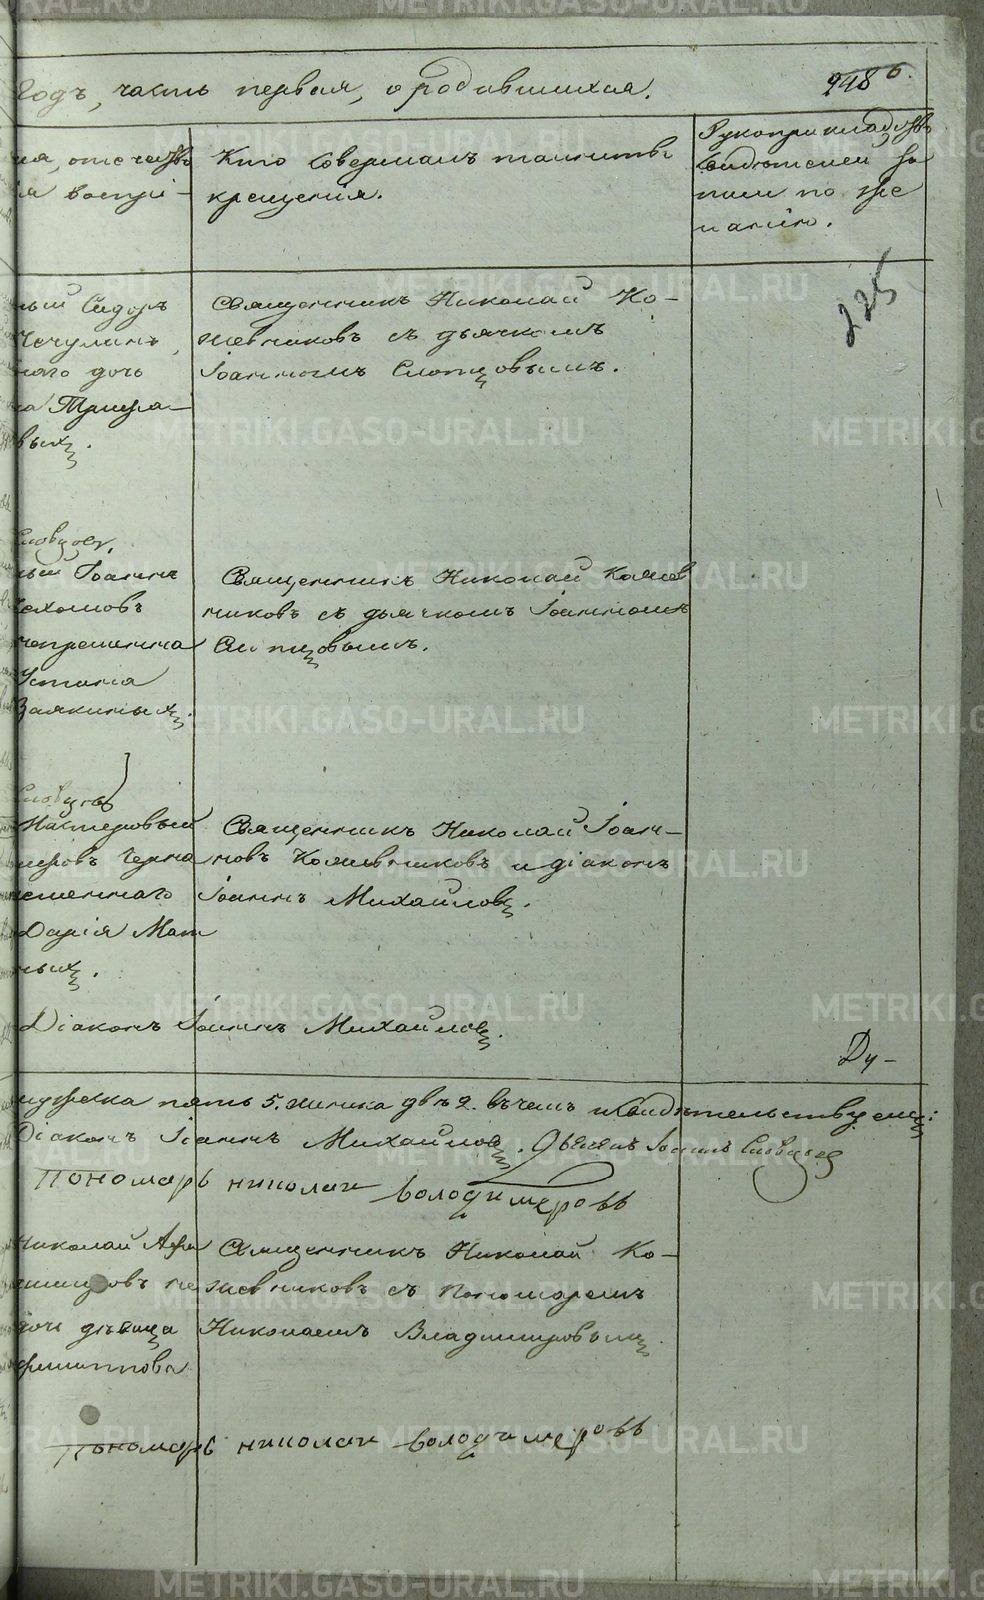 Годъ, часть первая, о родившихся.
948 6.
ия, отечество
ія воспрі-
Кто совершалъ таинство
крещенія.
Рукоприкладство
свидѣтелей за
писи по же
ланію.
225
ный Сидоръ
Чечулинъ,
наго дочь
на Трифа-
выхъ.
Священникъ Николай Ко-
жевниковъ съ дьячкомъ
Іоанномъ Словцовымъ.
Словцовъ.
ный Іоаннъ
Пахомовъ
непремѣнна
Устинія
Заякиныхъ.
Священникъ Николай Кожев
никовъ съ дьячкомъ Іоанномъ
Словцовымъ.
Словцовъ
Мастеровый
Черна
меннаго
Дарія Мат
ныхъ.
Священникъ Николай Іоан-
новъ Кожевниковъ и діаконъ
Іоаннъ Михайловъ.
Діаконъ Іоаннъ Михайловъ.
Ду-
мужеска пять 5. женска двѣ 2. въ чемъ и свидѣтельствуемъ:
Діаконъ Іоаннъ Михайловъ. Дьячекъ Іоаннъ Словцовъ
Пономарь николаи володимеровъ
Николай
дочь дѣвица
Филиппова
Священникъ Николай Ко-
жевниковъ съ пономаремъ
Николаемъ Владимировымъ.
Пономарь николаи володимеровъ
METRIKI.GASO-URAL.RU